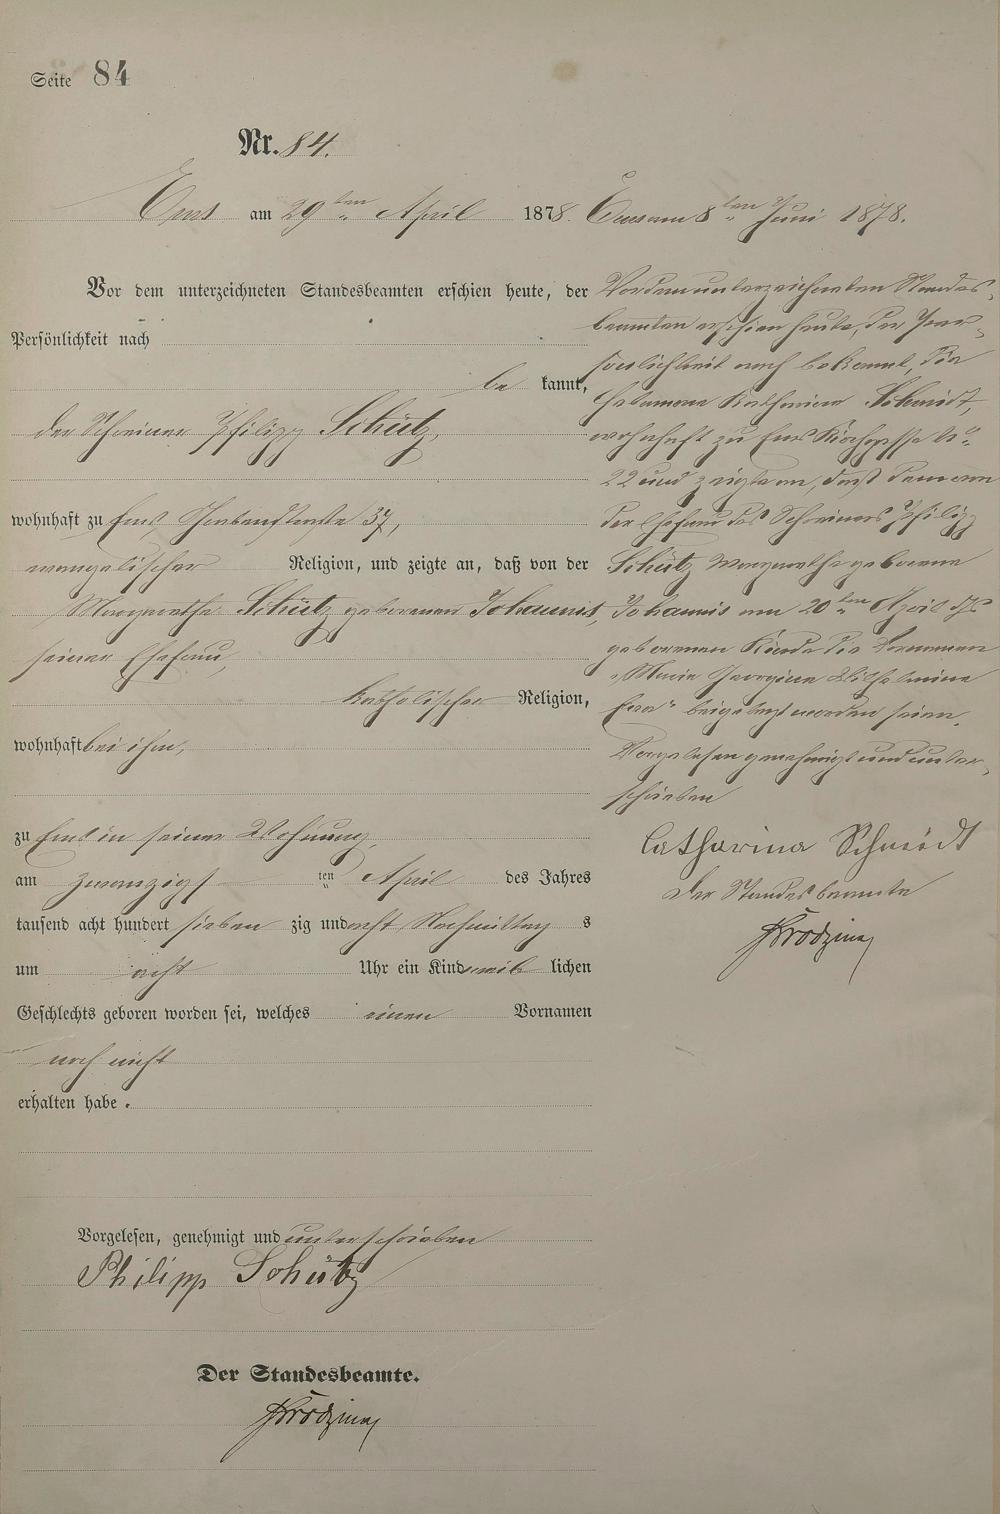 Seite 84
Nr. 84.
Ems am 29ten April 1878.
Vor dem unterzeichneten Standesbeamten erschien heute, der
Persönlichkeit nach
be kannt,
der Schreiner Philipp Schütz,
wohnhaft zu Ems, 37,
evangelischer Religion, und zeigte an, daß von der
Margarethe Schütz geborenen Johannis,
seiner Ehefrau,
katholischer Religion,
wohnhaft bei ihm,
zu Ems in seiner Wohnung,
am zwanzigsten April des Jahres
tausend acht hundert sieben zig und acht Nachmittag s
um acht Uhr ein Kind weib lichen
Geschlechts geboren worden sei, welches einen Vornamen
noch nicht
erhalten habe.
Vorgelesen, genehmigt und unterschrieben
Philipp Schütz
Der Standesbeamte.
Ems am 8ten Juni 1878.
Vor dem unterzeichneten Standes-
beamten erschien heute, der Per-
sönlichkeit nach bekannt, die
Hebamme Katharina Schmidt,
wohnhaft zu Ems Kirchgasse No
22 und zeigte an, dass dem von
der Ehefrau des Schreiners Philipp
Schütz Margarethe geborene
Johannis am 20ten April ds Js
geborenen Kinde die Vornamen
"Marie Georgine Wilhelmine
" beigelegt worden seien.
Vorgelesen genehmigt und unter-
schrieben
Catharina Schmidt
Der Standesbeamte